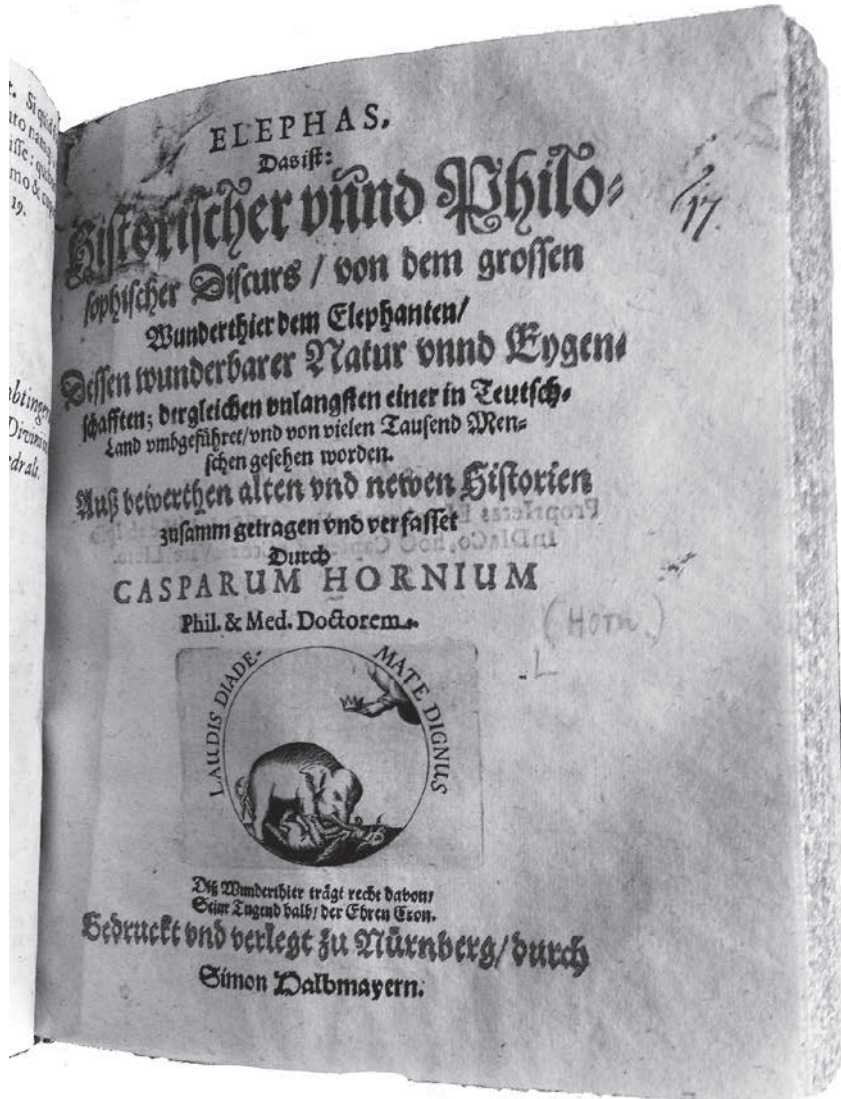 ELEPHAS,
Das ist:
Historischer vnnd Philo-
sophischer Discurs / von dem grossen
Wunderthier dem Elephanten/
Dessen wunderbarer Natur vnnd Eygen-
schafften; dergleichen vnlangsten einer in Teutsch-
Land vmbgeführet/vnd von vielen Tausend Men-
schen gesehen worden.
Auß bewerthen alten vnd newen Historien
zusamm getragen vnd verfasset
Durch
CASPARUM HORNIUM
Phil. & Med. Doctorem.
(Horn.)
L
LAUDIS DIADE-
MATE DIGNUS
Diß Wunderthier trägt recht davon/
Seinr Tugend halb/ der Ehren Cron.
Gedruckt vnd verlegt zu Nürnberg/ durch
Simon Halbmayern.
17.
19.